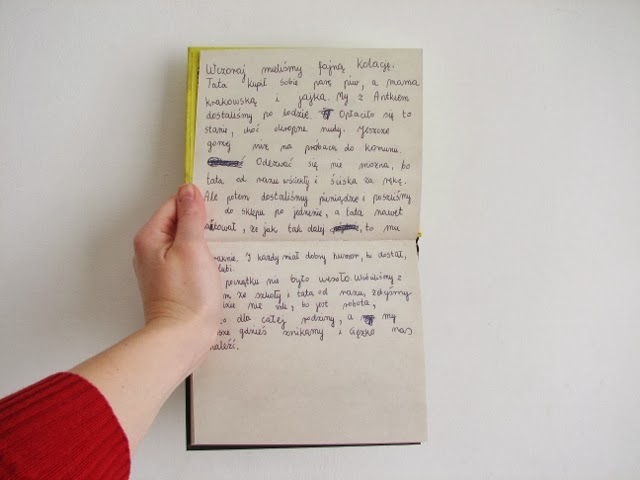 Wczoraj mieliśmy fajną kolację.
Tata kupił sobie parę piw, a mama
krakowską i jajka. My z Antkiem
dostaliśmy po lodzie. Opłaciło się to
stanie, choć okropne nudy. Jeszcze
gorzej niż na próbach do komunii.
Odezwać się nie można, bo
tata od razu wściekły i ściska za rękę.
Ale potem dostaliśmy pieniądze i poszliśmy
do sklepu po jedzenie, a tata nawet
żartował, że jak tak dalej, to mu
braknie. I każdy miał dobry humor, bo dostał,
lubi.
początku nie było wesoło. Wróciliśmy z
ze szkoły i tata od razu, żebyśmy
nie, bo jest robota,
dla całej rodziny, a my
gdzieś znikamy i ciężko nas
znaleźć.